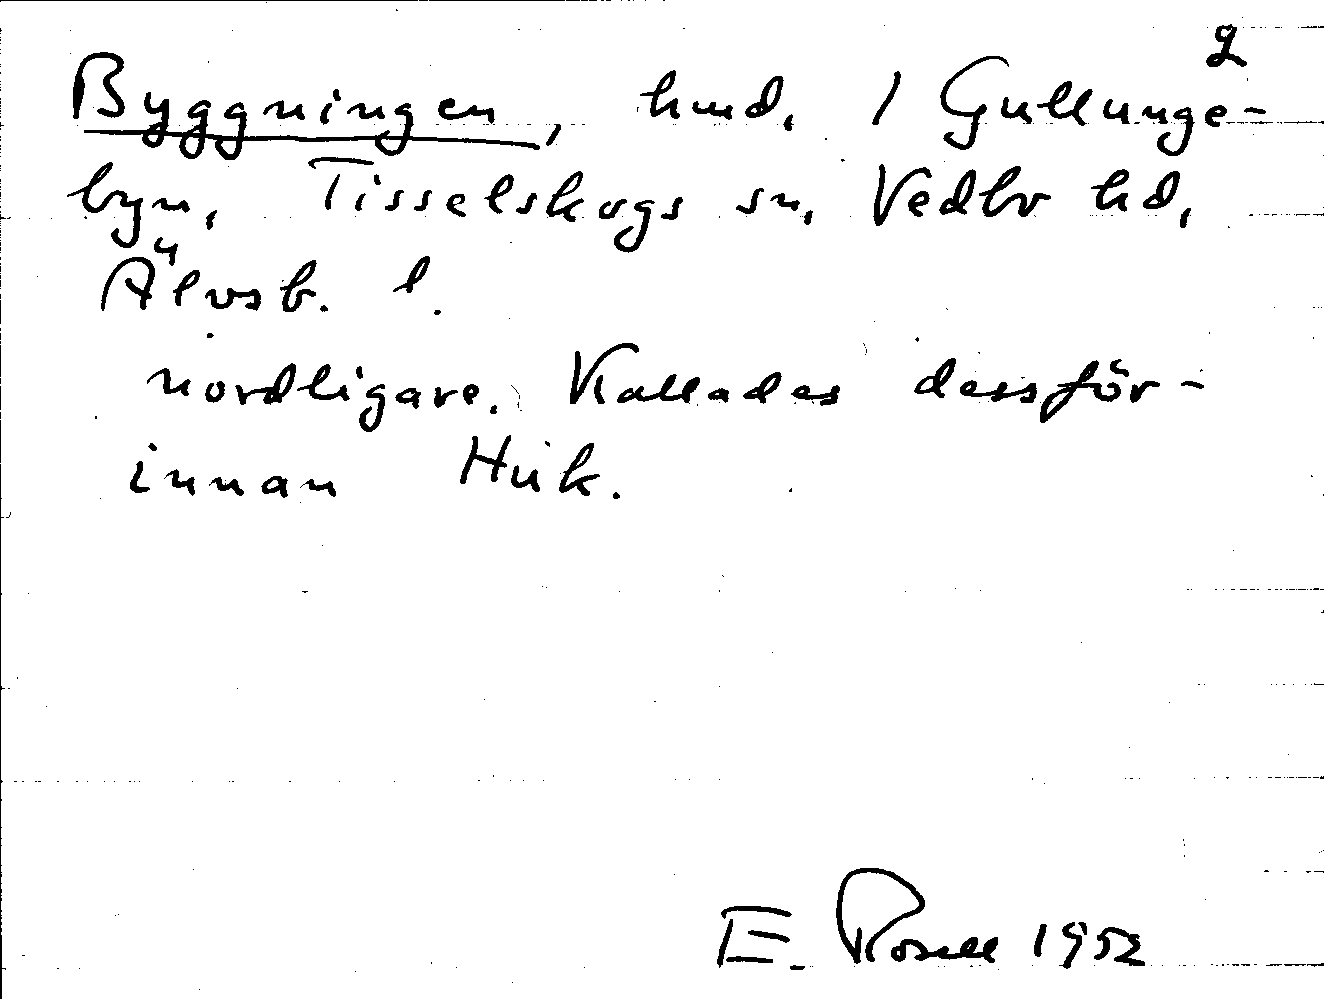 2
Byggningen, hmd. 1 Gullunge-
byn, Tisselskogs sn, Vedbo hd,
Älvsb. l.
nordligare. Kallades dessför-
innan Huk.
E. Rosell 1952